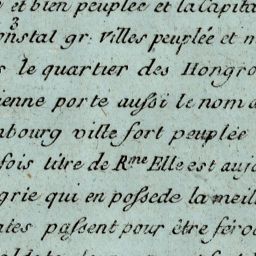 et bien peuplée et la Capita
3
onstal gr. villes peuplée et m
s le quartier des Hongro
ienne porte aussi le nom d
nbourg ville fort peuplée
fois titre de Rme Elle est auj
grie qui en possede la meill
ates passent pour être féroc